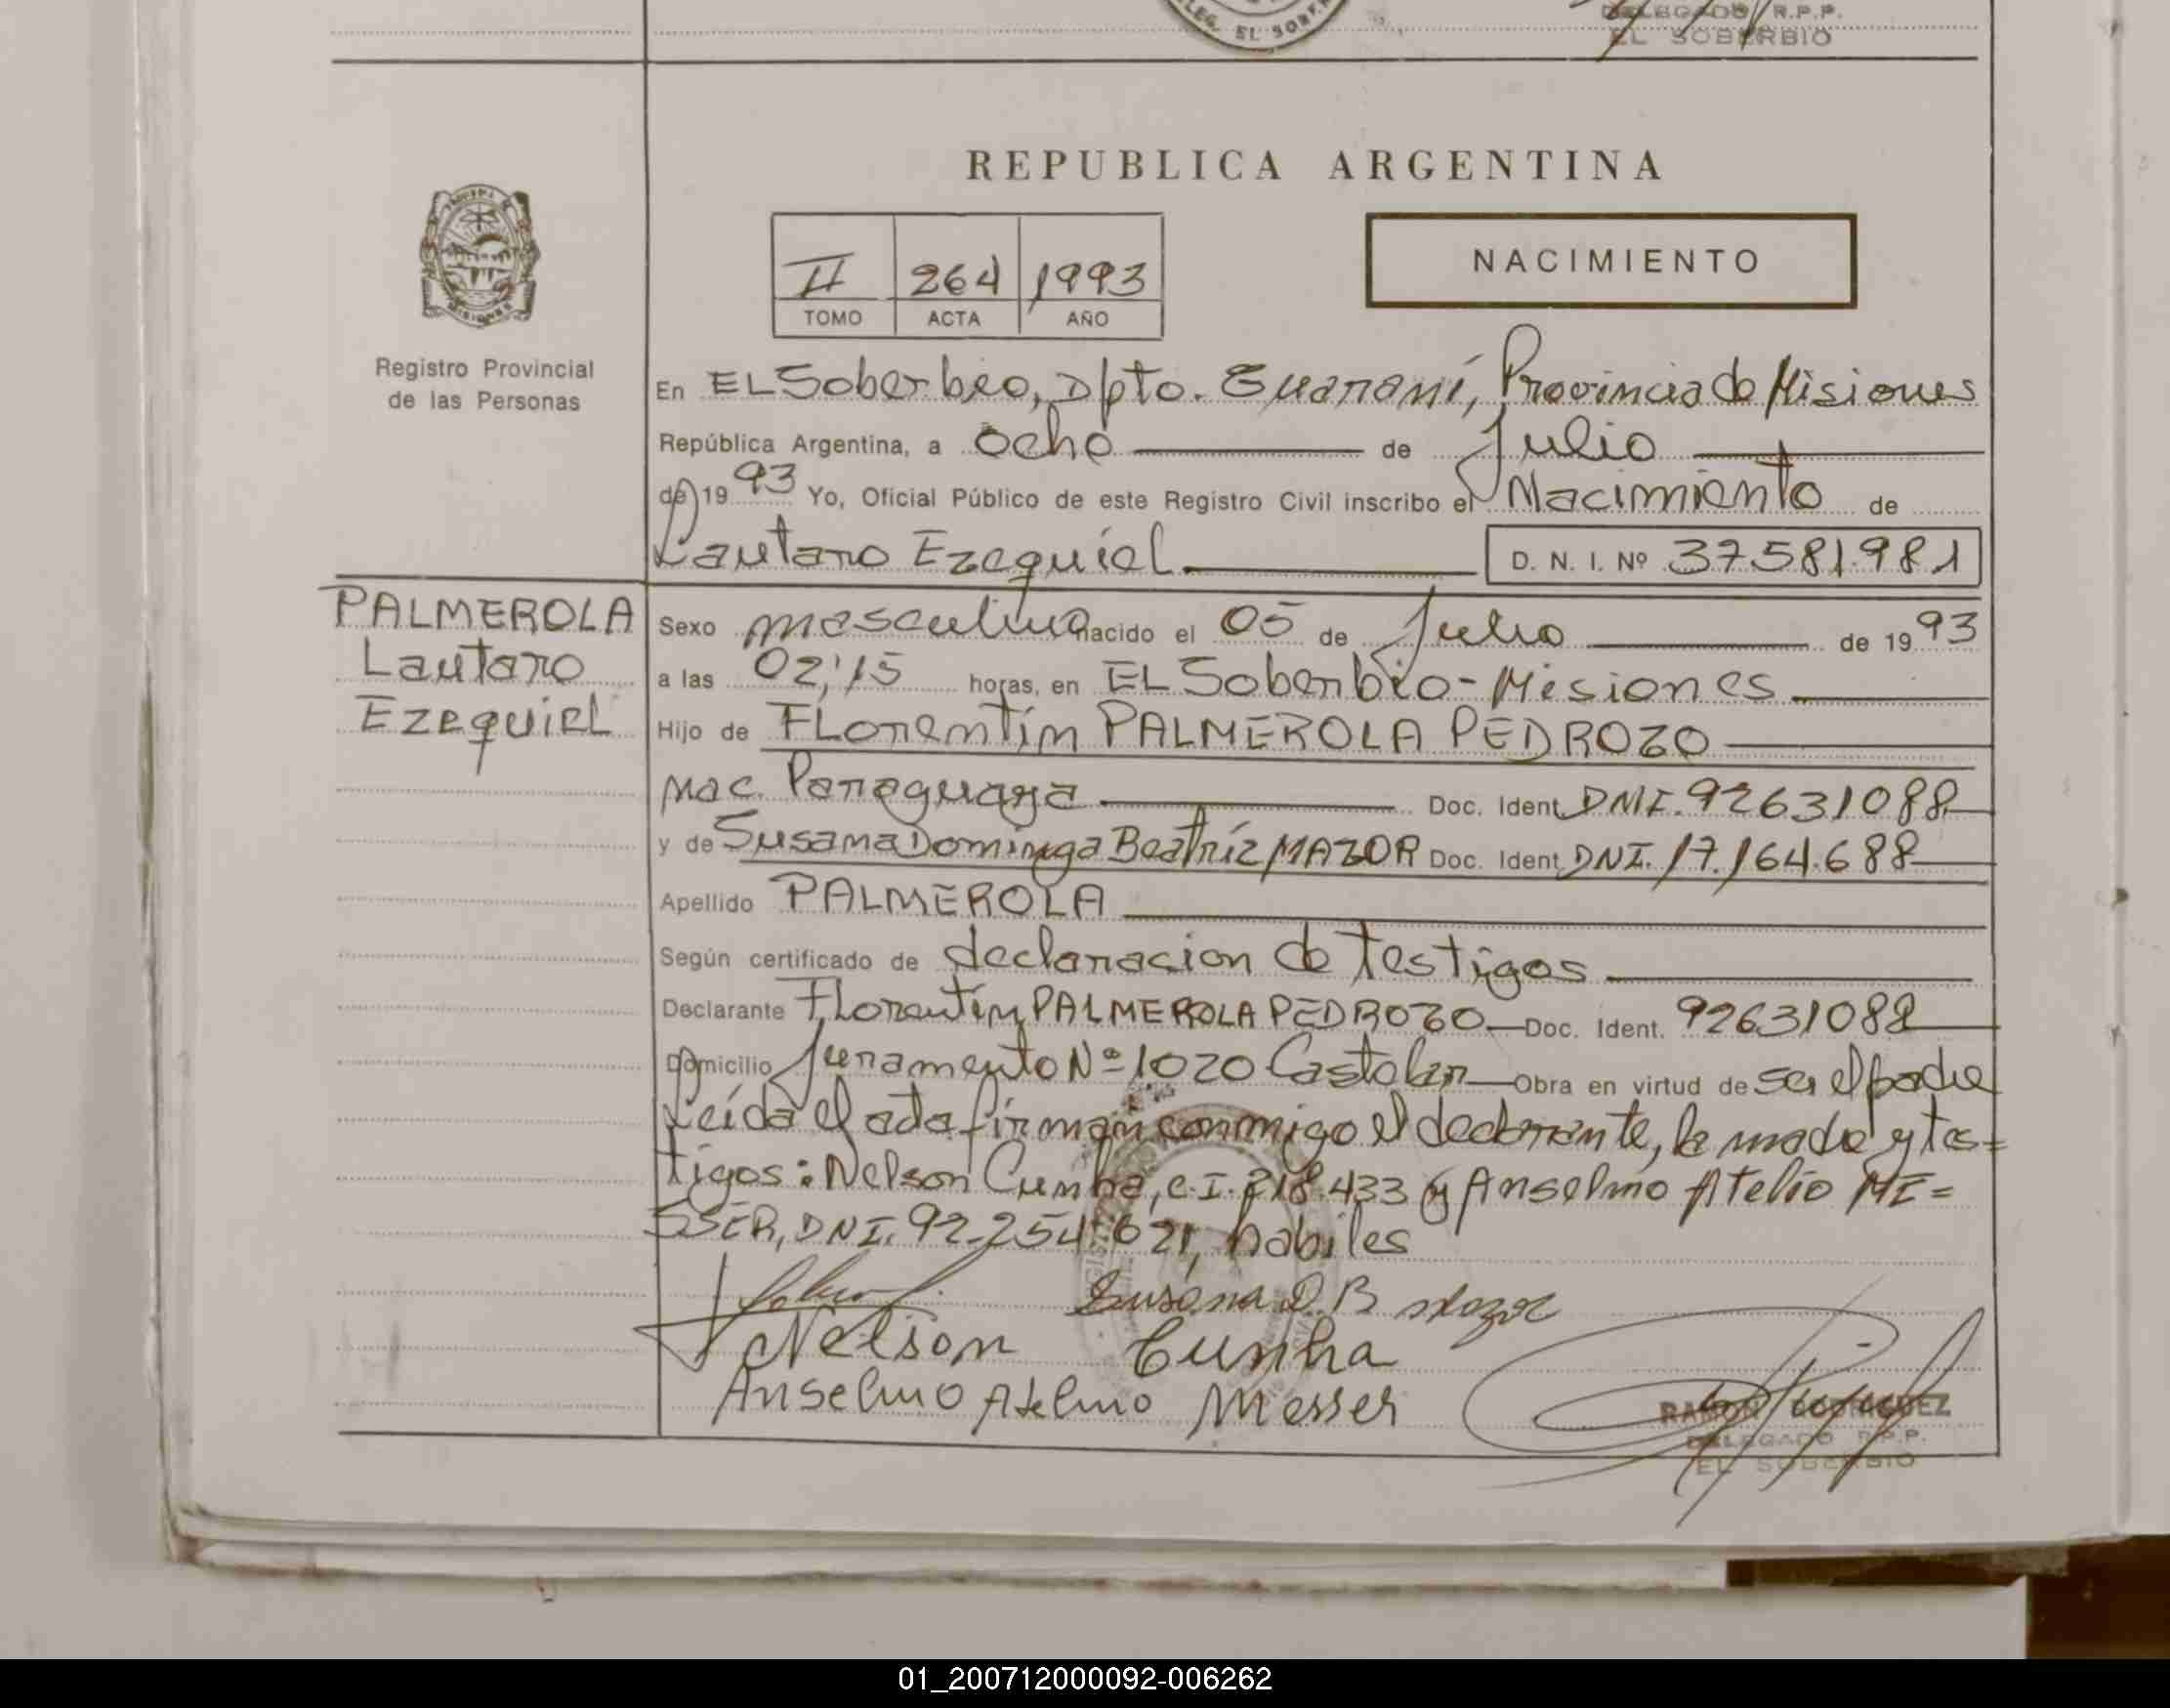 DELEGADO R.P.P.
EL SOBERBIO
REPUBLICA ARGENTINA
II 264 1993
TOMO ACTA AÑO
NACIMIENTO
Registro Provincial
de las Personas
En EL Soberbio, Dpto. Guaraní, Provincia de Misiones
República Argentina, a ocho de Julio
de 1993 Yo, Oficial Público de este Registro Civil inscribo el Nacimiento de
Lautaro Ezequiel D. N. I. Nº 37.581.981
PALMEROLA
Lautaro
Ezequiel
Sexo masculino nacido el 05 de Julio de 1993
a las 02,15 horas, en EL Soberbio - Misiones
Hijo de FLorentín PALMEROLA PEDROZO
nac. Paraguaya Doc. Ident. DNI. 92631088
y de Susana Dominga Beatríz MAZOR Doc. Ident. DNI. 17.164.688
Apellido PALMEROLA
Según certificado de declaracion de testigos
Declarante FLorentín PALMEROLA PEDROZO Doc. Ident. 92631088
Domicilio Juramento Nº 1020 Obra en virtud de ser el padre
Leída el acta firman conmigo el declarante, la madre y tes=
tigos: Nelson Cunha, C.I. 218.433 y Anselmo Atelio ME=
SSER, DNI. 92.254.621, habiles
Susana D. B Mazor
Nelson Cunha
Anselmo Atelmo Messer
RAMON RODRIGUEZ
DELEGADO R.P.P.
EL SOBERBIO
01_200712000092-006262